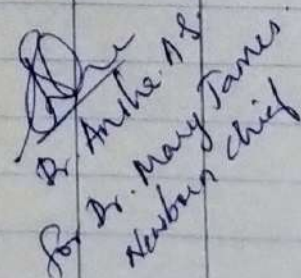 Dr. Anshe A S.
for Dr. Mary James
Newborn chief